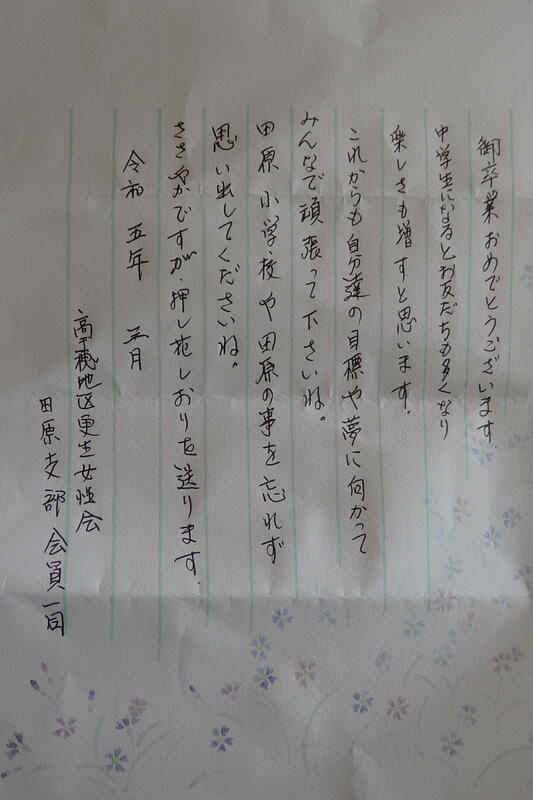 御卒業おめでとうございます。
中学生になるとお友だちも多くなり
楽しさも増すと思います。
これからも自分達の目標や夢に向かって
みんなで頑張って下さいね。
田原小学校や田原の事を忘れず
思い出してくださいね。
ささやかですが、押し花しおりを送ります。
令和 五年 三月
高千穂地区更生女性会
田原支部 会員一同